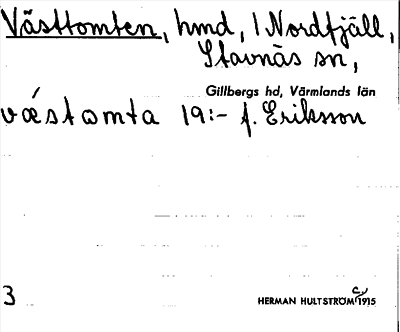 Västtomten, hmd, 1 Nordfjäll,
Stavnäs sn,
Gillbergs hd, Värmlands län
vǽstomta 19:- f. Eriksson
3
HERMAN HULTSTRÖM 1915